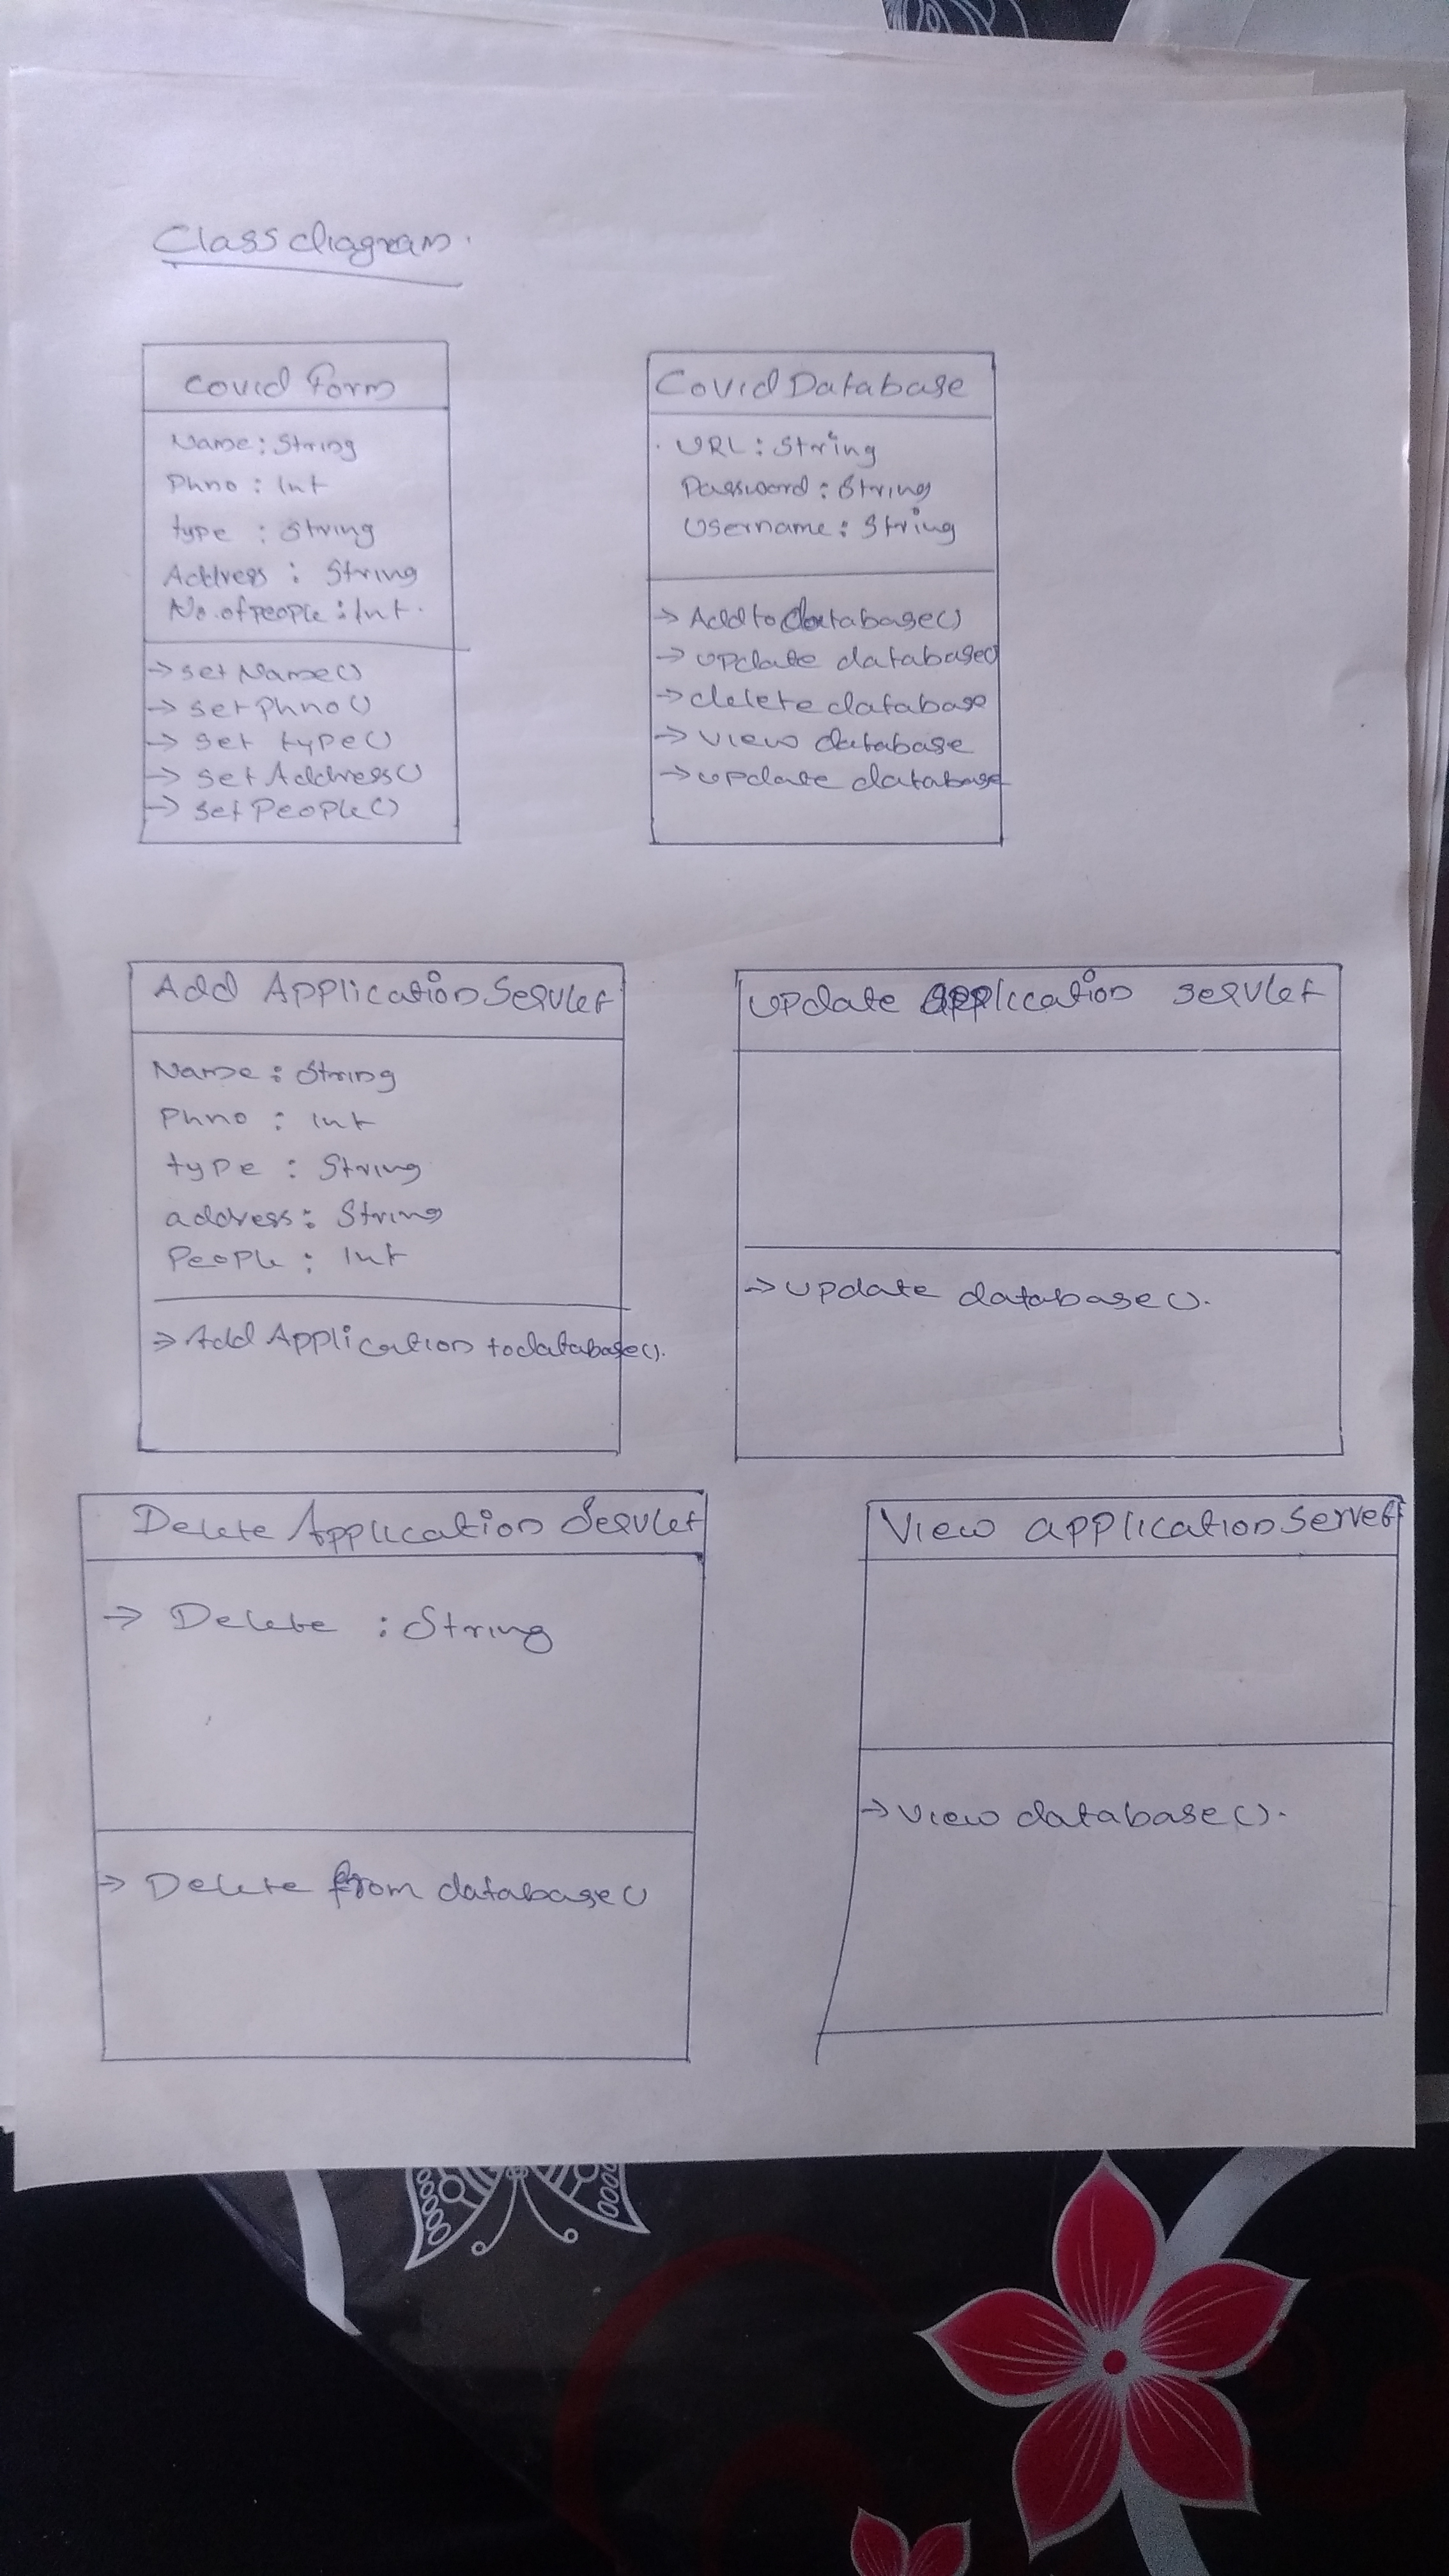 Class diagram.
Covid Form
Name : String
Phno : Int
type : String
Address : String
No.of people : Int.
→ setName()
→ setPhno()
→ set type()
→ setAddress()
→ setPeople()
Covid Database
URL : String
Password : String
Username : String
→ Add to database()
→ update database()
→ delete database
→ view database
→ update database
Add Application Servlet
Name : String
Phno : Int
type : String
address : String
People : Int
→ Add Application to database().
update application servlet
→ update database().
Delete Application Servlet
→ Delete : String
→ Delete from database()
View application Servet
→ view database().